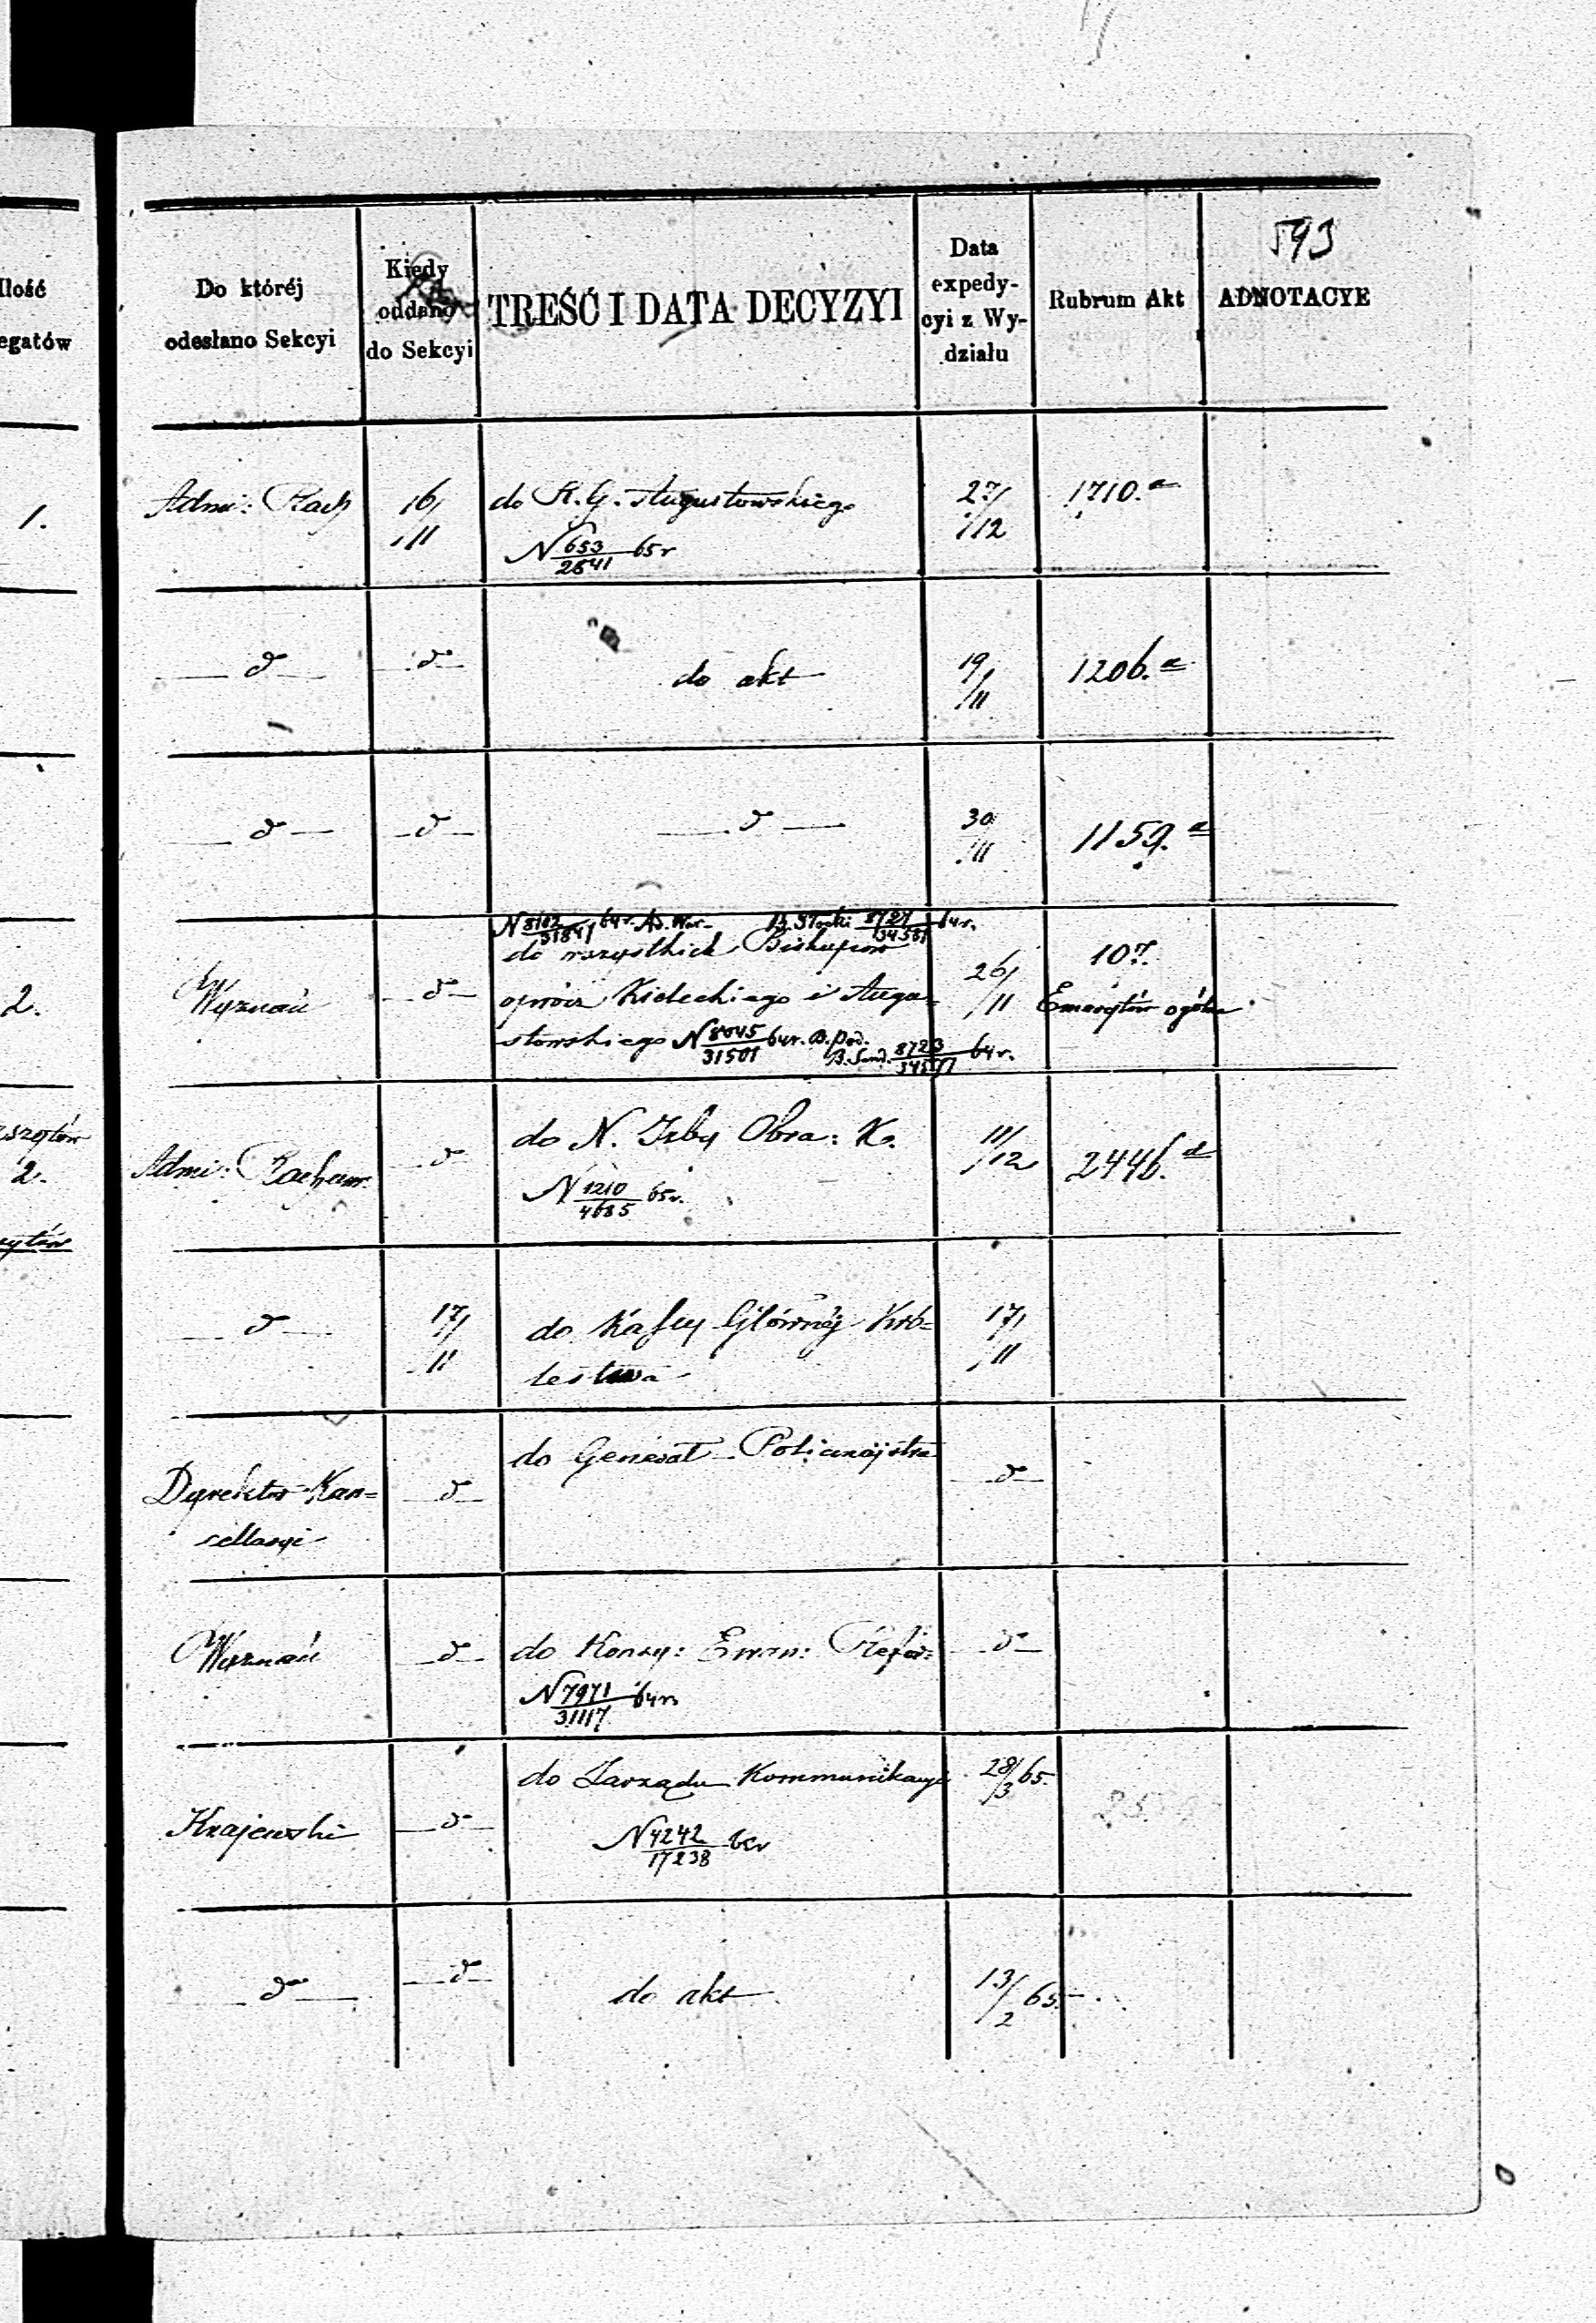 593
Ilość
egatów
Do któréj
odesłano Sekcyi
Kiedy
oddano
do Sekcyi
TREŚĆ I DATA DECYZYI
Data
expedy-
cyi z Wy-
działu
Rubrum Akt
ADNOTACYE
1.
Admi: Rach
16/
/11
do R. G. Augustowskiego
N 653/2641 65r
27/
/12
1710.a
d
d
do akt
19/
/11
1206.a
d
d
d
30
/11
1159.a
2.
Wyznań
d
N 8102/31841 64r. Ad. War.
B. Płocki 8727/34581 64r.
do wszystkich Biskupów
oprócz Kieleckiego i Augu=
stowskiego N 8045/31501 64r. B. Pod.
B. Sand. 8723/ 64r.
26/
/11
107.
Emerytów ogólne
2.
Admi: Rachun.
d
do N. Izby Obra: K.
N 1210/4685 65r.
11/
/12
2446.d
d
17/
11
do Kassy Głównéj Kró=
lestwa
17/
/11
Dyrektor Kan=
cellaryi
d
do Generał-Policmajstra
d
Wyznań
d
do Konsy: Ewan: Refor:
N 7971/31117 64r.
d
Krajewski
d
do Zarządu Kommunikacyi
N 4242/17238 65r
28/3 65.
d
d
do akt
13/2 65.